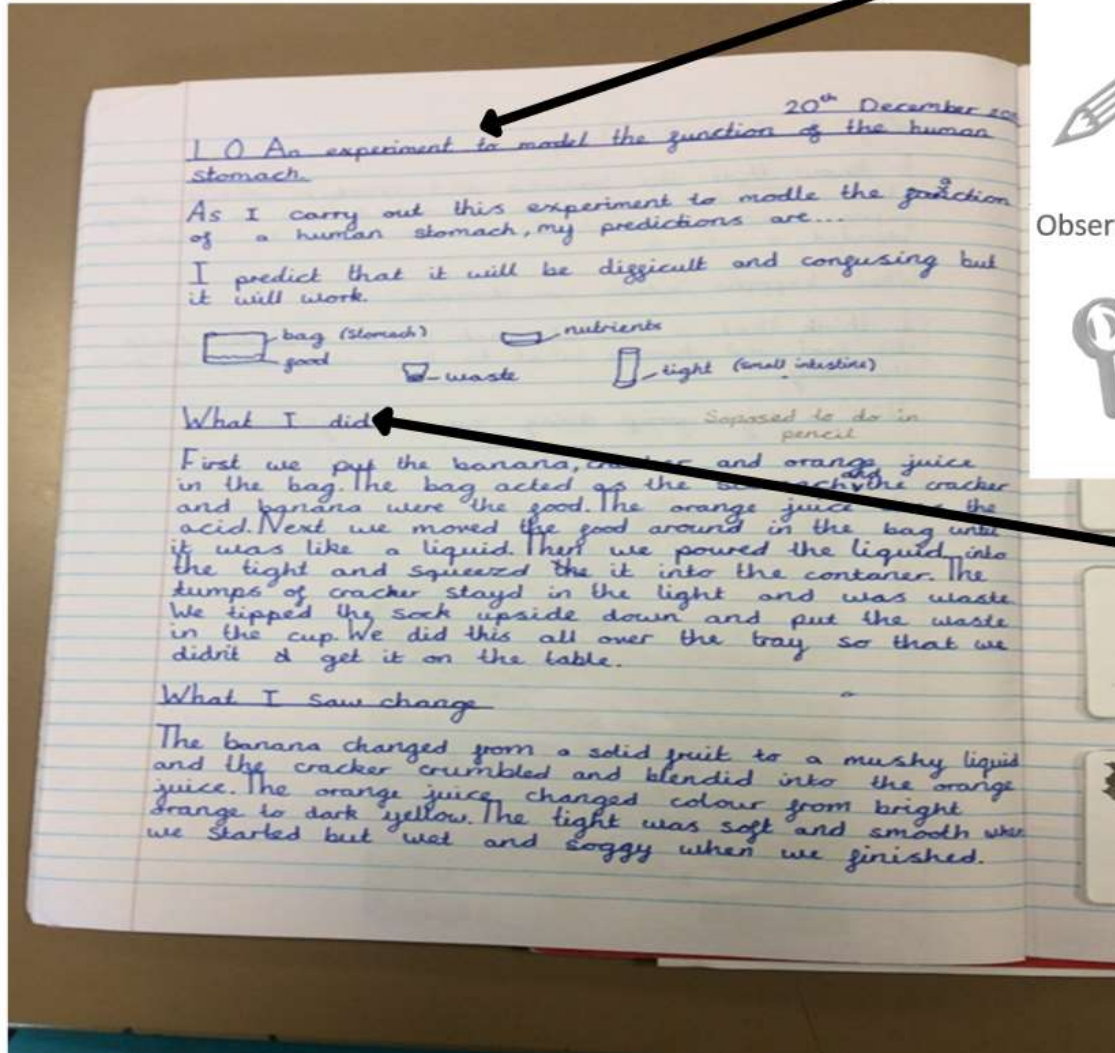 20th December
L O An experiment to model the function of the human
stomach.
As I carry out this experiment to modle the function
of a human stomach, my predictions are...
I predict that it will be difficult and confusing but
it will work.
bag (stomach)
food
waste
nutrients
tight (small intestine)
What I did
Soposed to do in
pencil
First we put the banana, cracker and orange juice
in the bag. The bag acted as the stomach and the cracker
and banana were the food. The orange juice the
acid. Next we moved the food around in the bag until
it was like a liquid. Then we poured the liquid into
the tight and squeezd the it into the contaner. The
lumps of cracker stayd in the tight and was waste.
We tipped the sock upside down and put the waste
in the cup. We did this all over the tray so that we
didn't get it on the table.
What I saw change
The banana changed from a solid fruit to a mushy liquid
and the cracker crumbled and blendid into the orange
juice. The orange juice changed colour from bright
orange to dark yellow. The tight was soft and smooth when
we started but wet and soggy when we finished.
Obser